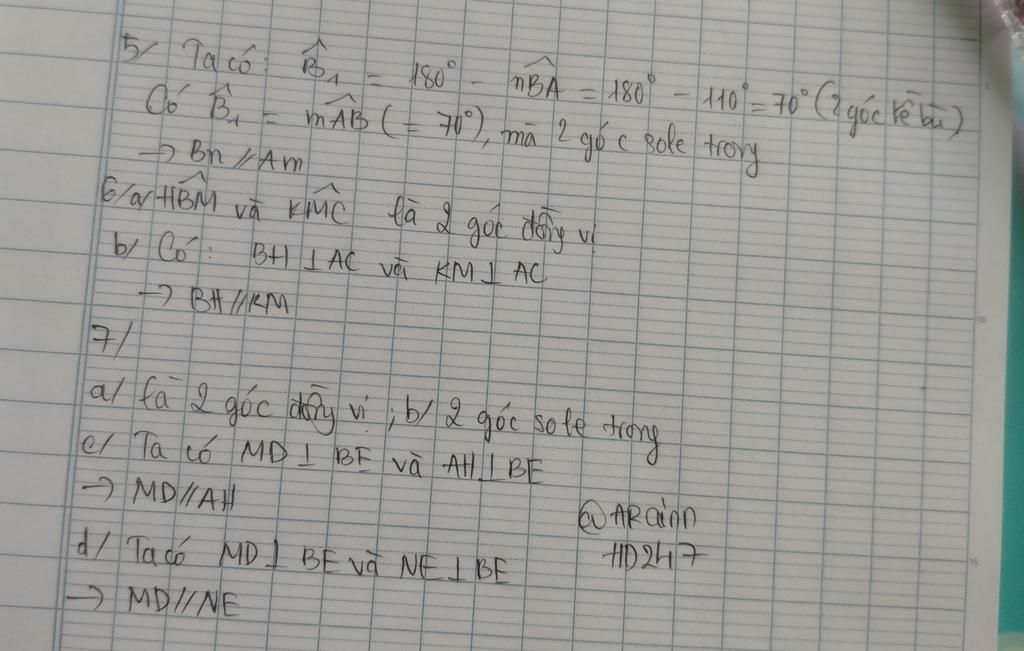 5/ Ta có: B̂₁ = 180° - nB̂A = 180° - 110° = 70° (2 góc kề bù)
Có B̂₁ = mÂB (= 70°), mà 2 góc sole trong
→ Bn // Am
6/a/ HB̂M và KM̂C là 2 góc đồng vị
b/ Có: BH ⊥ AC và KM ⊥ AC
→ BH // KM
7/
a/ là 2 góc đồng vị ; b/ 2 góc sole trong
c/ Ta có MD ⊥ BE và AH ⊥ BE
→ MD // AH
@ARainn
HD247
d/ Ta có MD ⊥ BE và NE ⊥ BE
→ MD // NE